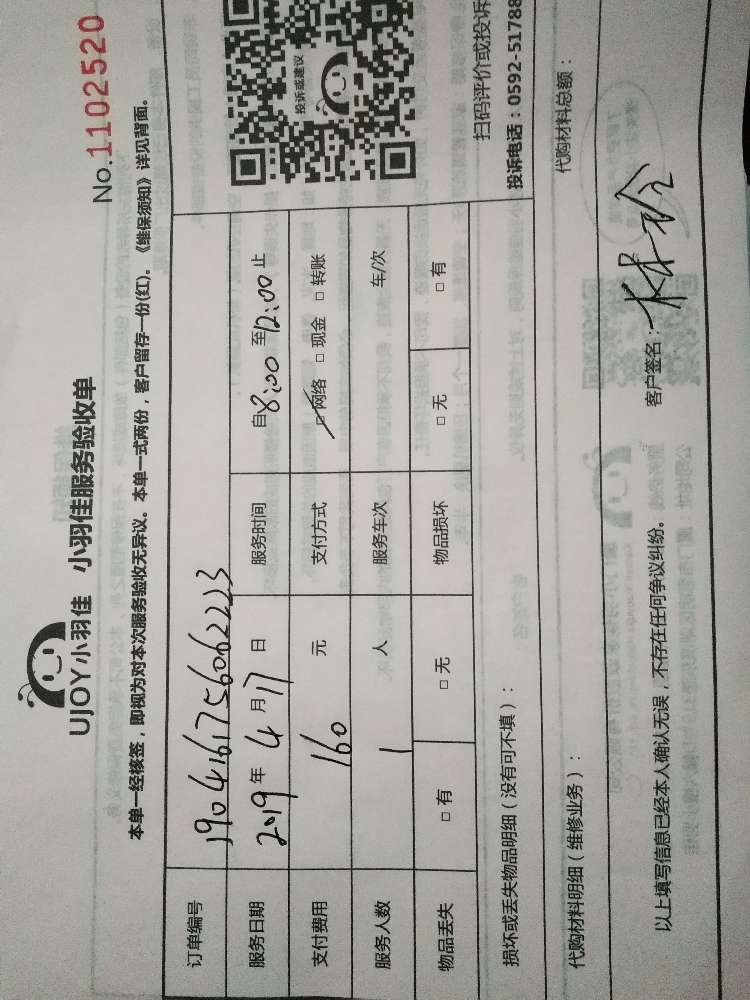 UJOY小羽佳 小羽佳服务验收单
No.1102520
本单一经核签，即视为对本次服务验收无异议。本单一式两份，客户留存一份(红)。《维保须知》详见背面。
订单编号 1904161756062223
服务日期 2019 年 4 月 17 日 服务时间 自 8:00 至 12:00 止
支付费用 160 元 支付方式 □网络 □现金 □转账
服务人数 1 人 服务车次 车/次
物品丢失 □有 □无 物品损坏 □无 □有
投诉或建议
扫码评价或投诉
投诉电话：0592-51788
损坏或丢失物品明细（没有可不填）：
代购材料明细（维修业务）： 代购材料总额：
以上填写信息已经本人确认无误，不存在任何争议纠纷。 客户签名：